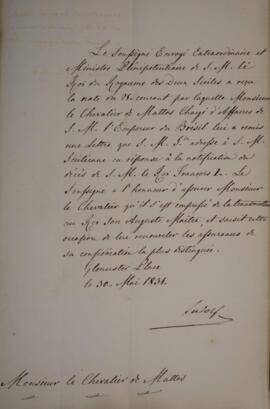 Le Soussigné Envoyé Extraordinaire et
Ministre Plénipotentiaire de S. M. le
Roi du Royaume des Deux Siciles a reçu
la note du 28. courant par laquelle Monsieur
le Chevalier de Mattos Chargé d'Affaires de
S. M. l'Empereur du Brésil lui a remis
une Lettre que S. M. I. adresse à S. M.
Sicilienne en réponse à la notification du
décès de S. M. le Roi François I. Le
Soussigné a l'honneur d'assurer Monsieur
le Chevalier qu'il s'est empressé de la transmettre
au Roi Son Auguste Maître, et saisit cette
occasion de lui renouveler les assurances de
sa considération la plus distinguée.
Gloucester Place
le 30. Mai 1831.
Ludolf
Monsieur le Chevalier de Mattos